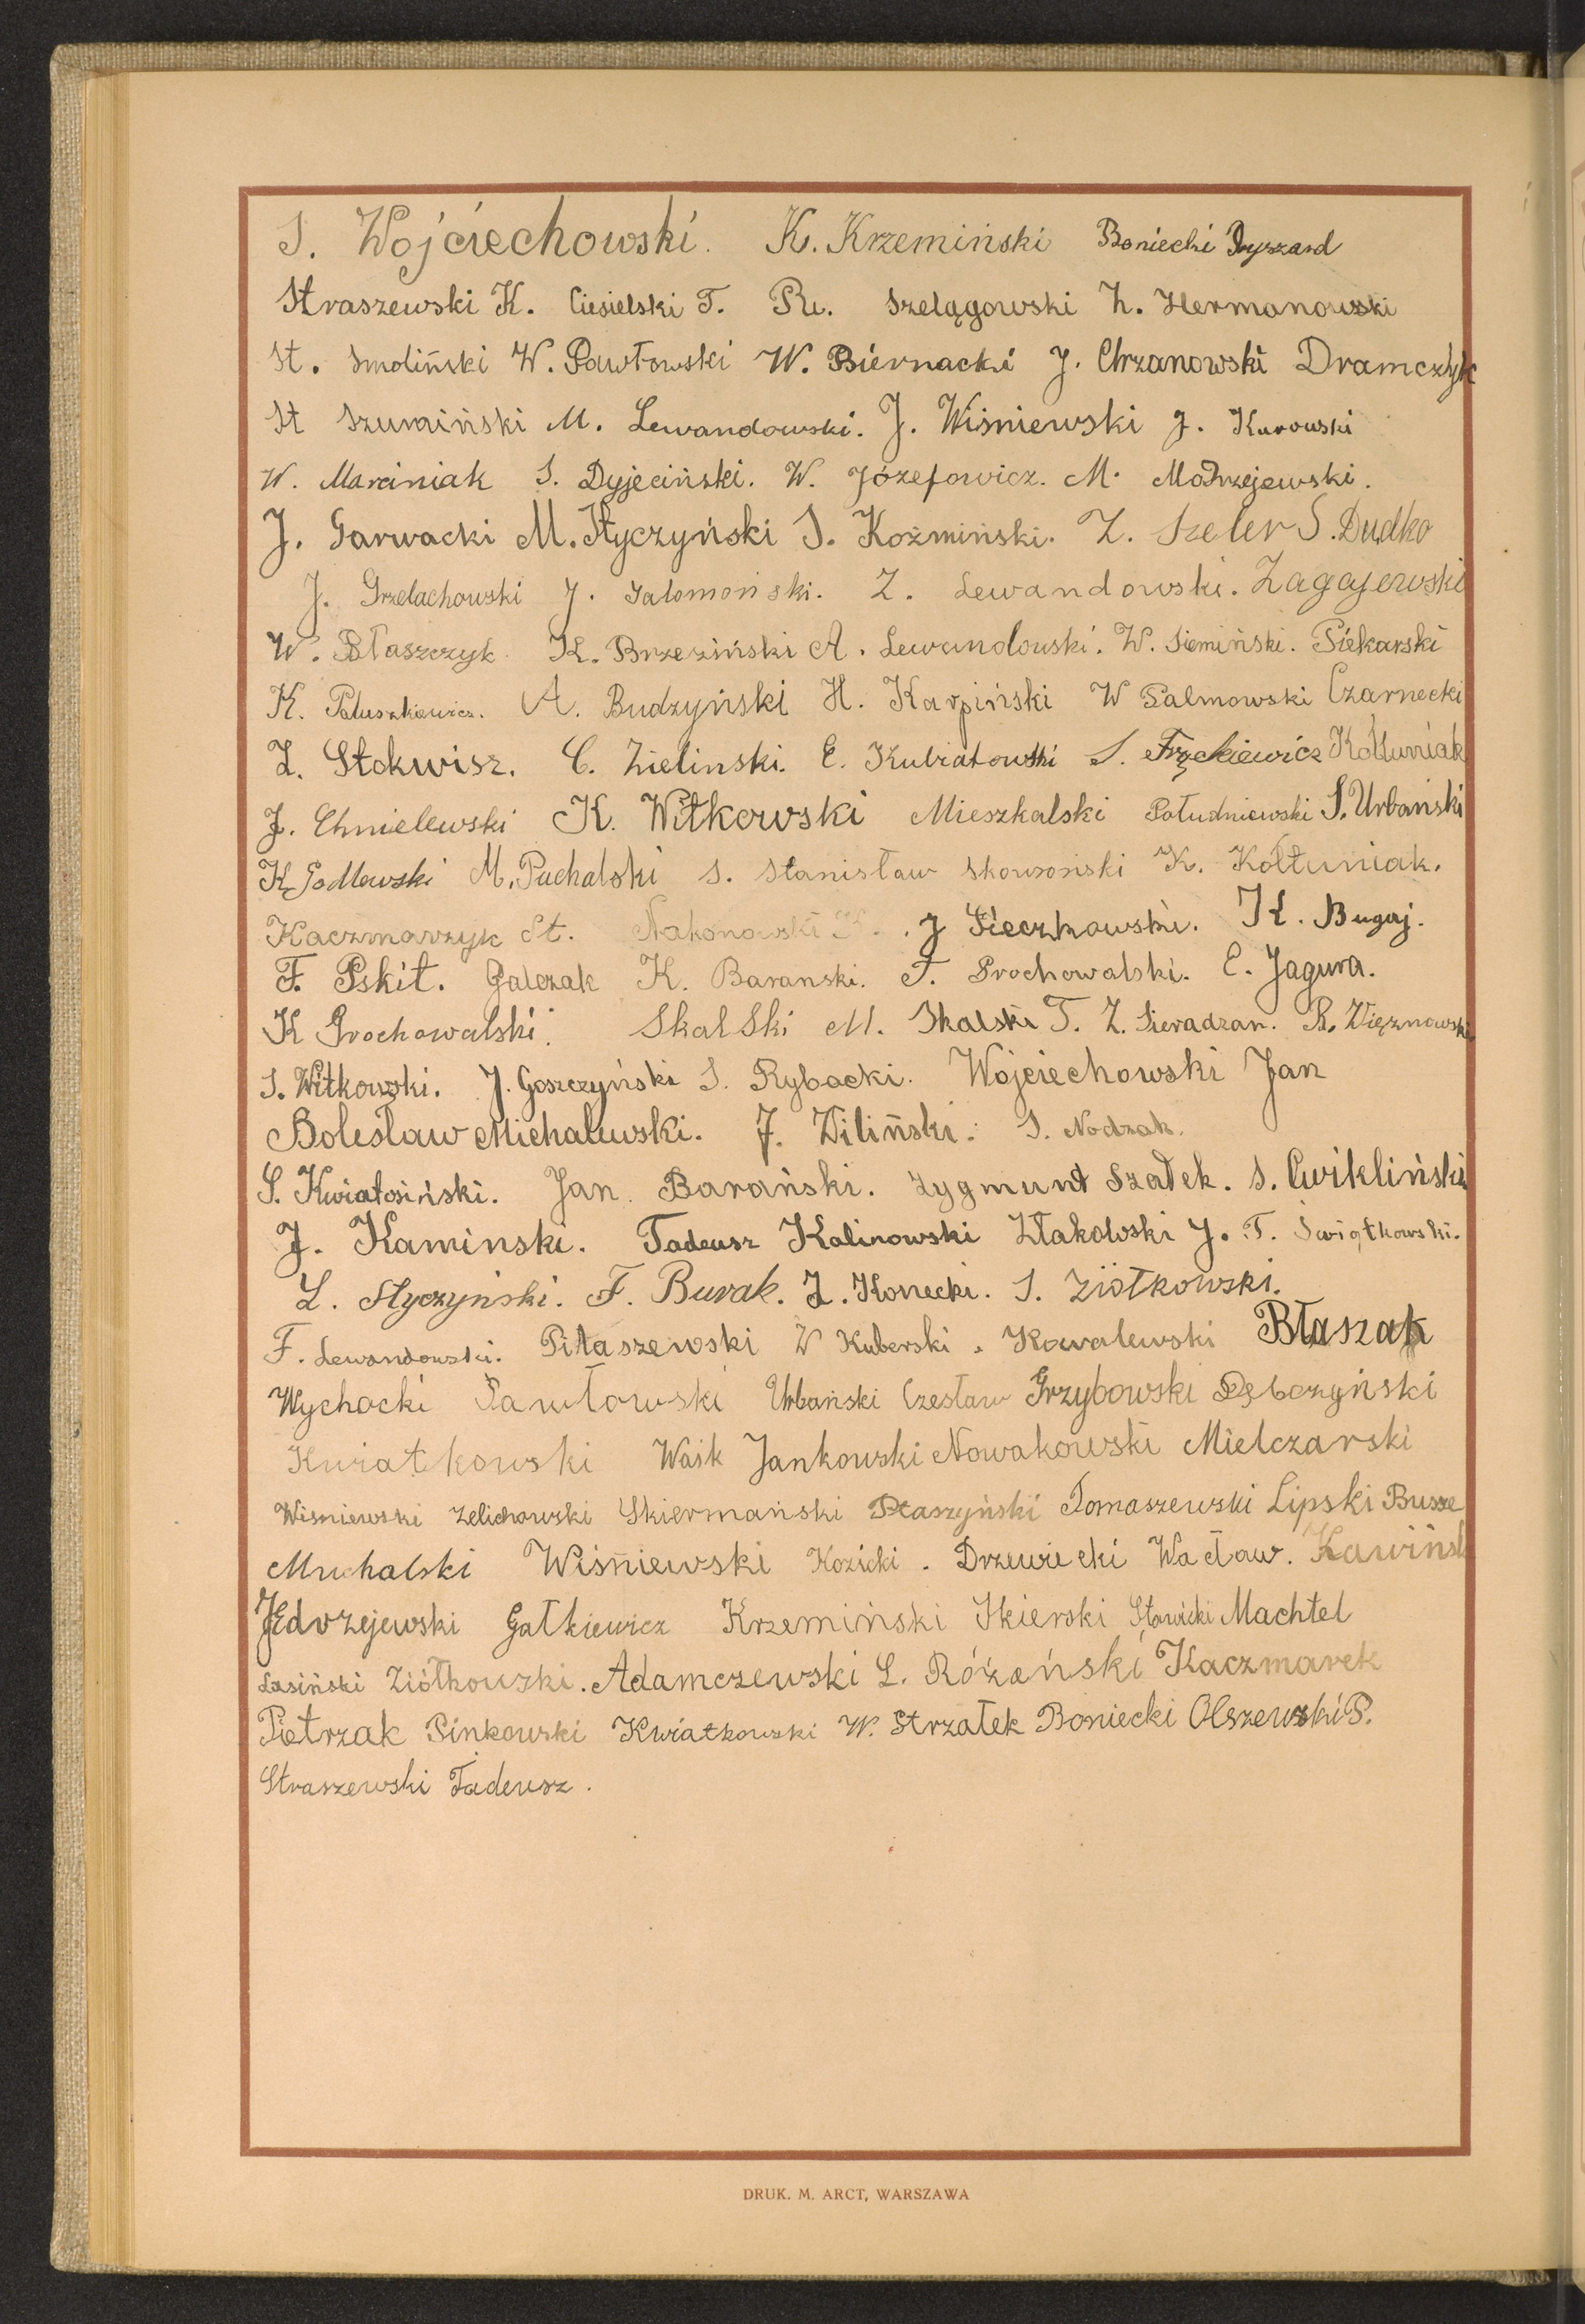 S. Wojciechowski. K. Krzemiński Boniecki Ryszard
Straszewski K. Ciesielski T. Szelągowski Z. Hermanowski
St. Smoliński W. Pawłowski W. Biernacki J. Chrzanowski Dramczyk
St Szumiński M. Lewandowski. J. Wiśniewski J. Kurowski
W. Marciniak S. Dyjeciński. W. Józefowicz. M. Modrzejewski.
J. Garwacki M. Styczyński S. Koźmiński. Z. Szeler S. Dudko
J. Grzelachowski J. Salomoński. Z. Lewandowski. Zagajewski
W. Błaszczyk K. Brzeziński A. Lewandowski. W. Siemiński. Piekarski
K. Paluszkiewicz. A. Budzyński H. Karpiński W Palmowski Czarnecki
Z. Stokwisz. C. Zielinski. E. Kubiatowski S. Kołtuniak
J. Chmielewski K. Witkowski Mieszkalski Południewski S. Urbański
K. Godlewski M. Puchalski S. Stanisław Skowroński K. Kołtuniak.
Kaczmarzyk St. Nakonowski K. J Sieczkowski. K. Bugaj.
F. Pskit. Galczak K. Baranski. T. Prochowalski. E. Jagura.
K Grochowalski. Skalski M. Skalski T. Z. Sieradzan. R. Więznowski
S. Witkowski. J. Goszczyński S. Rybacki. Wojciechowski Jan
Bolesław Michalewski. J. Wiliński. S. Nodzak.
S. Kwiatosiński. Jan Barański. Zygmunt Szałek. S. Cwikliński
J. Kaminski. Tadeusz Kalinowski Złakowski J. T. Świątkowski.
L. Styczyński. F. Burak. Z. Konecki. S. Ziółkowski.
F. Lewandowski. Pitaszewski W Kuberski. Kowalewski Błaszak
Wychocki Pawłowski Urbański Czesław Grzybowski Dębczyński
Kwiatkowski Waśk Jankowski Nowakowski Mielczarski
Wisniewski Zelichowski Skiermański Ptaszyński Tomaszewski Lipski Busse
Muchalski Wiśniewski Kozicki. Drzewiecki Wacław. Kawińsk
Jędrzejewski Gałkiewicz Krzemiński Skierski Sławicki Machtel
Lasiński Ziółkowski. Adamczewski L. Różański Kaczmarek
Pietrzak Pinkowski Kwiatkowski W. Strzałek Boniecki Olszewski P.
Straszewski Tadeusz.
DRUK. M. ARCT, WARSZAWA